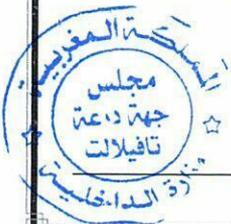 المملكة المغربية
مجلس
جهة درعة
تافيلالت
وزارة الداخلية